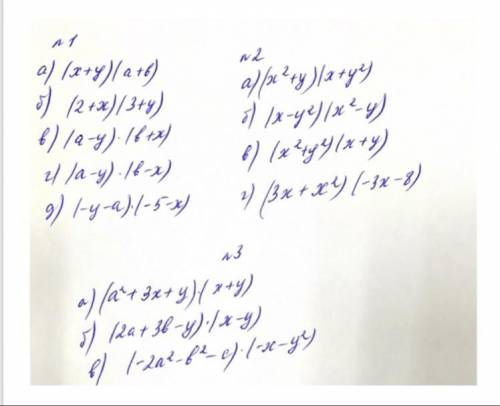 №1
а) (x+y)(a+в)
б) (2+x)(3+y)
в) (a-y)·(в+x)
г) (a-y)·(в-x)
д) (-y-a)·(-5-x)
№2
а) (x²+y)(x+y²)
б) (x-y²)(x²-y)
в) (x²+y²)(x+y)
г) (3x+x²)(-3x-8)
№3
а) (a²+3x+y)·(x+y)
б) (2a+3в-y)·(x-y)
в) (-2a²-в²-c)·(-x-y²)